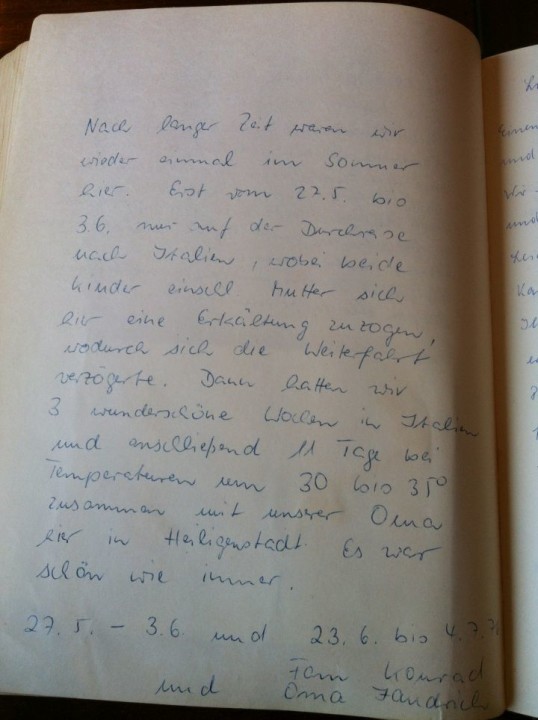 Nach langer Zeit waren wir
wieder einmal im Sommer
hier. Erst vom 27.5. bis
3.6. nur auf der Durchreise
nach Italien, wobei beide
Kinder einschl Mutter sich
hier eine Erkältung zuzogen,
wodurch sich die Weiterfahrt
verzögerte. Dann hatten wir
3 wunderschöne Wochen in Italien
und anschließend 11 Tage bei
Temperaturen um 30 bis 35°
zusammen mit unserer Oma
hier in Heiligenstadt. Es war
schön wie immer.
27.5. - 3.6. und 23.6. bis 4.7.
Fam Konrad
und Oma Jandrich